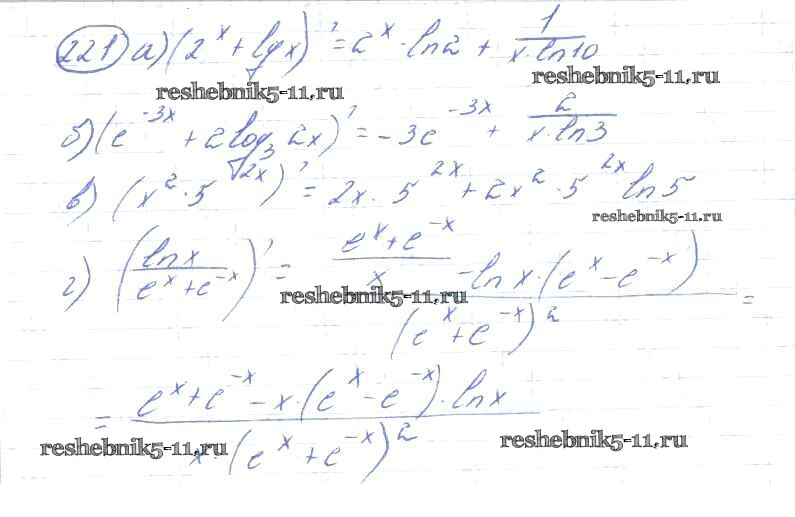 221 а) (2^x + lg x)' = 2^x · ln2 + 1/(x·ln10)
reshebnik5-11.ru reshebnik5-11.ru
б) (e^{-3x} + 2log_3 2x)' = -3e^{-3x} + 2/(x·ln3)
в) (x^2 · 5^{2x})' = 2x · 5^{2x} + 2x^2 · 5^{2x} ln5
reshebnik5-11.ru
г) (ln x/(e^x + e^{-x}))' = ((e^x + e^{-x})/x - ln x·(e^x - e^{-x}))/(e^x + e^{-x})^2 =
reshebnik5-11.ru
= (e^x + e^{-x} - x·(e^x - e^{-x})·ln x)/(x·(e^x + e^{-x})^2)
reshebnik5-11.ru reshebnik5-11.ru